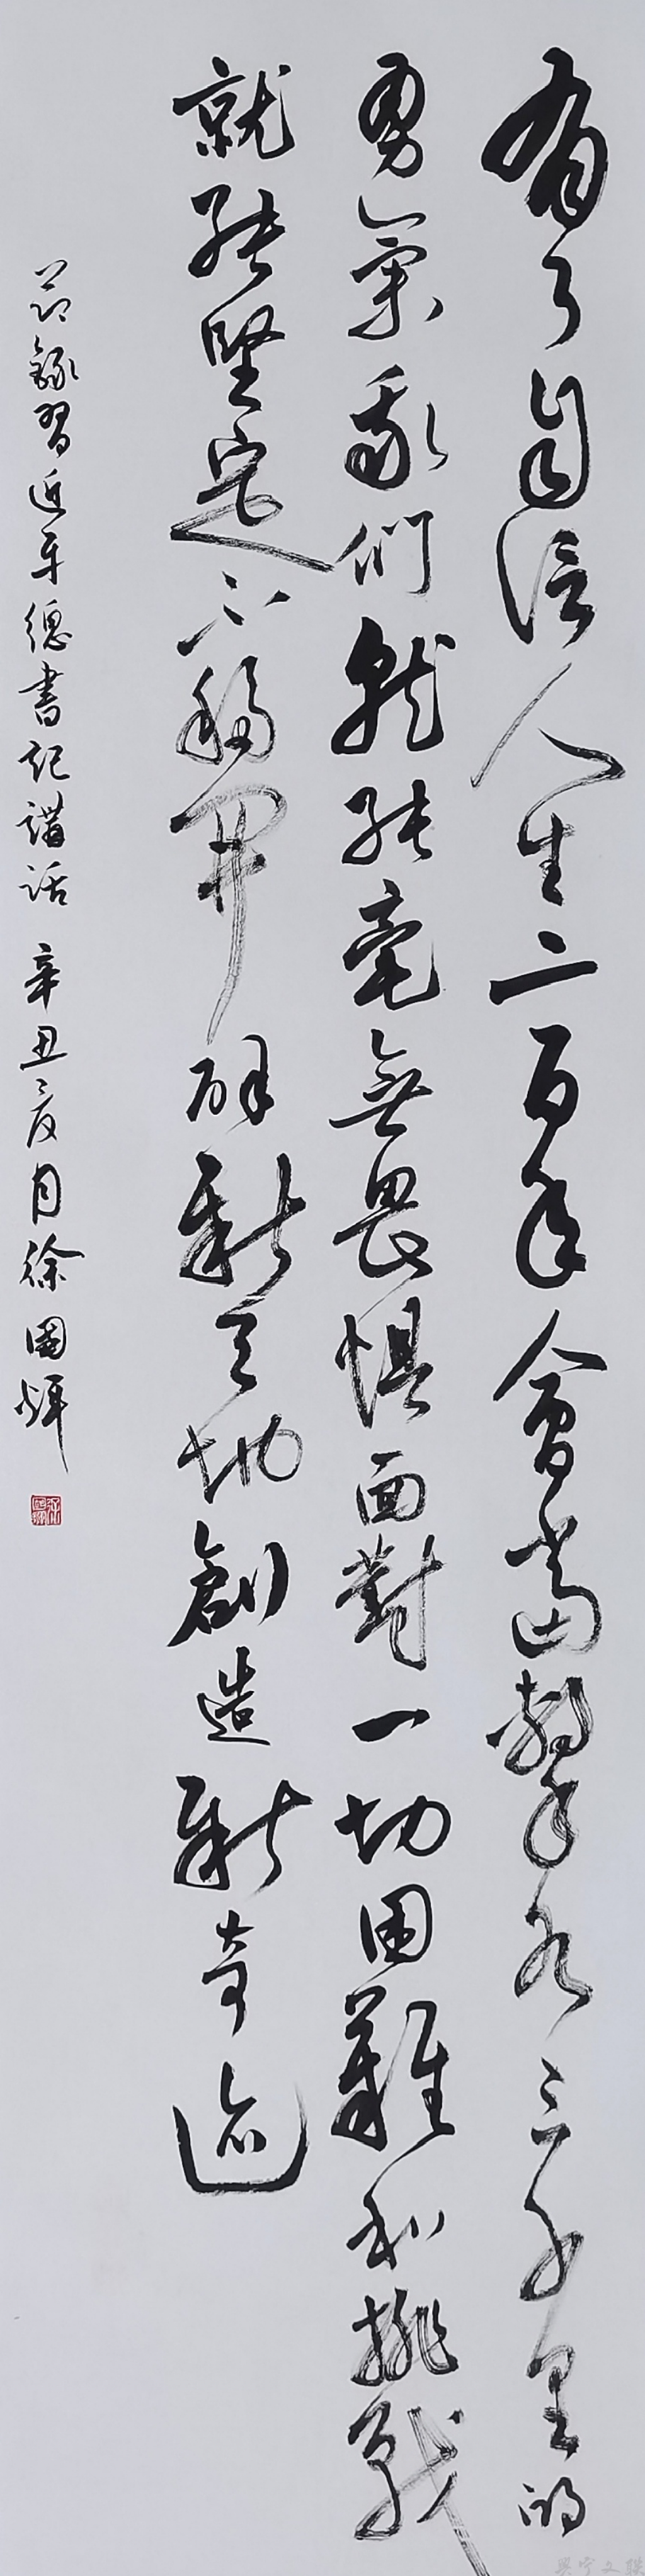 有了自信人生二百年會當擊水三千里的
勇氣我們就能毫無畏懼面對一切困難和挑戰
就能堅定不移開辟新天地創造新奇迹
節錄習近平總書記講話 辛丑夏月徐國輝
興寧文聯